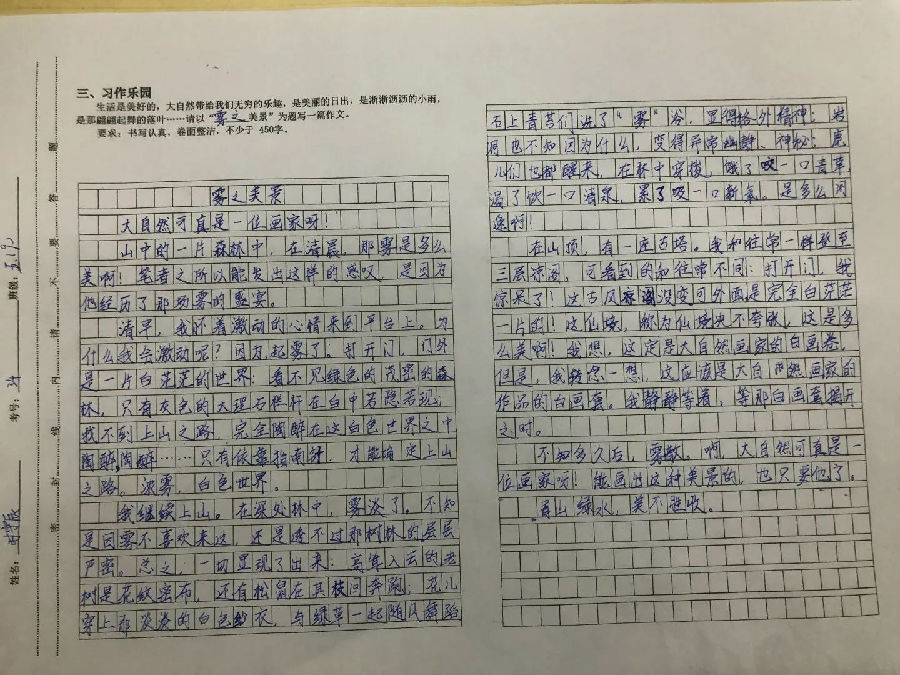 三、习作乐园
生活是美好的，大自然带给我们无穷的乐趣，是美丽的日出，是淅淅沥沥的小雨，
是那翩翩起舞的落叶……请以“雾之美景”为题写一篇作文。
要求：书写认真，卷面整洁，不少于 450字。
雾之美景
大自然可真是一位画家呀！
山中的一片森林中，在清晨，那雾是多么
美啊！笔者之所以能发出这样的感叹，是因为
他经历了那场雾的聚宴。
清早，我怀着激动的心情来到平台上。为
什么我会激动呢？因为起雾了。打开门，门外
是一片白茫茫的世界：看不见绿色的茂密的森
林，只有灰色的大理石栏杆在白中若隐若现；
找不到上山之路，完全陶醉在这白色世界之中
陶醉，陶醉……只有依靠指南针，才能确定上山
之路。浓雾，白色世界。
我继续上山。在深处林中，雾淡了。不知
是因雾不喜欢来这，还是透不过那树林的层层
严密。总之，一切显现了出来：高耸入云的老
树是花纹密布，还有松鼠在其枝间奔跑；花儿
穿上那淡淡的白色纱衣，与绿草一起随风舞蹈
石上青苔们进了“雾”浴，显得格外精神；岩
洞也不知因为什么，变得异常幽静、神秘；鹿
儿们也都醒来，在林中穿梭，饿了咬一口青草
渴了饮一口清泉，累了吸一口新氧。是多么闲
逸啊！
在山顶，有一座古塔。我和往常一样登至
三层凉阁，可看到的和往常不同：打开门，我
惊呆了！这古风没变可外面是完全白茫茫
一片的！这仙境，称为仙境决不夸张，这是多
么美啊！我想，这定是大自然画家的白画卷。
但是，我转念一想，这应该是大自然画家的
作品的白画套。我静静等着，等那白画套揭开
之时。
不知多久后，雾散。啊，大自然可真是一
位画家呀！能画出这种美景的，也只要他了。
青山绿水，美不胜收。
密 封 线 内 请 不 要 答 题
姓名：
考号：
班级：